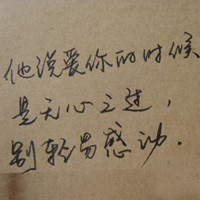 他说爱你的时候
是无心之过，
别轻易感动.